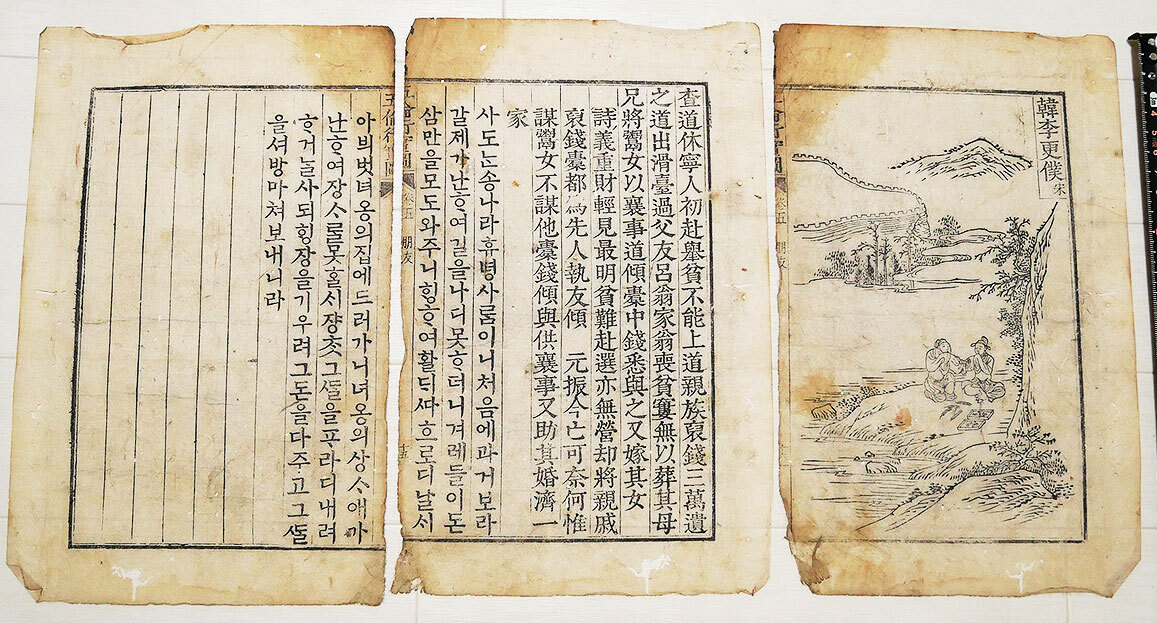 韓李更僕 宋
查道休寧人初赴擧貧不能上道親族裒錢三萬遺
之道出滑臺過父友呂翁家翁喪貧窶無以葬其母
兄將鬻女以襄事道傾橐中錢悉與之又嫁其女
詩義重財輕見最明貧難赴選亦無營却將親戚
裒錢橐都為先人執友傾 元振今亡可奈何惟
謀鬻女不謀他橐錢傾與供襄事又助其婚濟一
家
사도ᄂᆞᆫ송나라휴녕사ᄅᆞᆷ이니처음에과거보라
갈제가난ᄒᆞ여길을나디못ᄒᆞ더니겨레들이돈
삼만을모도와주니ᄒᆡᆼᄒᆞ여활ᄃᆡᄯᅡᄒᆞ로디날ᄉᆡ
五倫行實圖 卷五 朋友
아븨벗녀옹의집에드러가니녀옹의상ᄉᆞ애가
난ᄒᆞ여장ᄉᆞᄅᆞᆯ못ᄒᆞᆯᄉᆡ쟝ᄎᆞᆺ그ᄯᆞᆯ을ᄑᆞ라디내려
ᄒᆞ거ᄂᆞᆯ사되ᄒᆡᆼ장을기우려그돈을다주고그ᄯᆞᆯ
을셔방마쳐보내니라